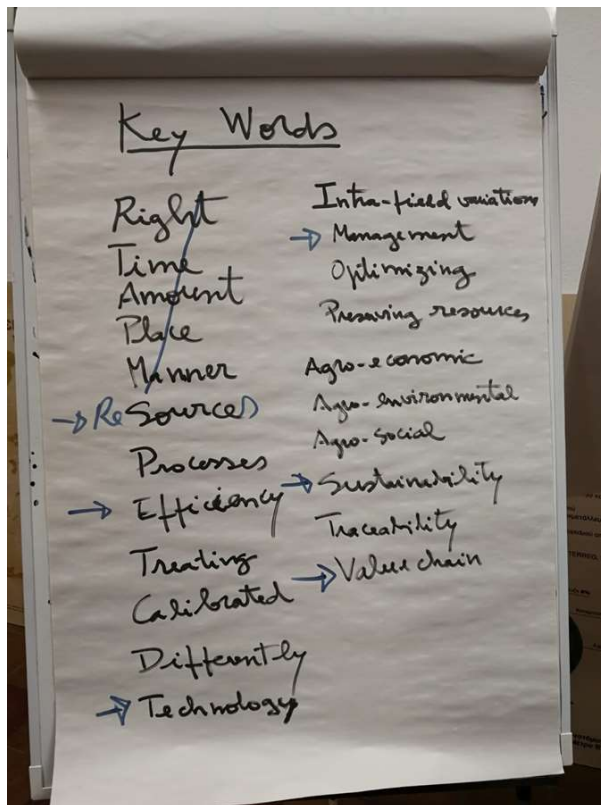 Key Words
Right
Time
Amount
Place
Manner
→ ReSources
Processes
→ Efficiency
Treating
Calibrated
Differently
→ Technology
Intra-field variations
→ Management
Optimizing
Preserving resources
Agro-economic
Agro-environmental
Agro-social
→ Sustainability
Traceability
→ Value chain